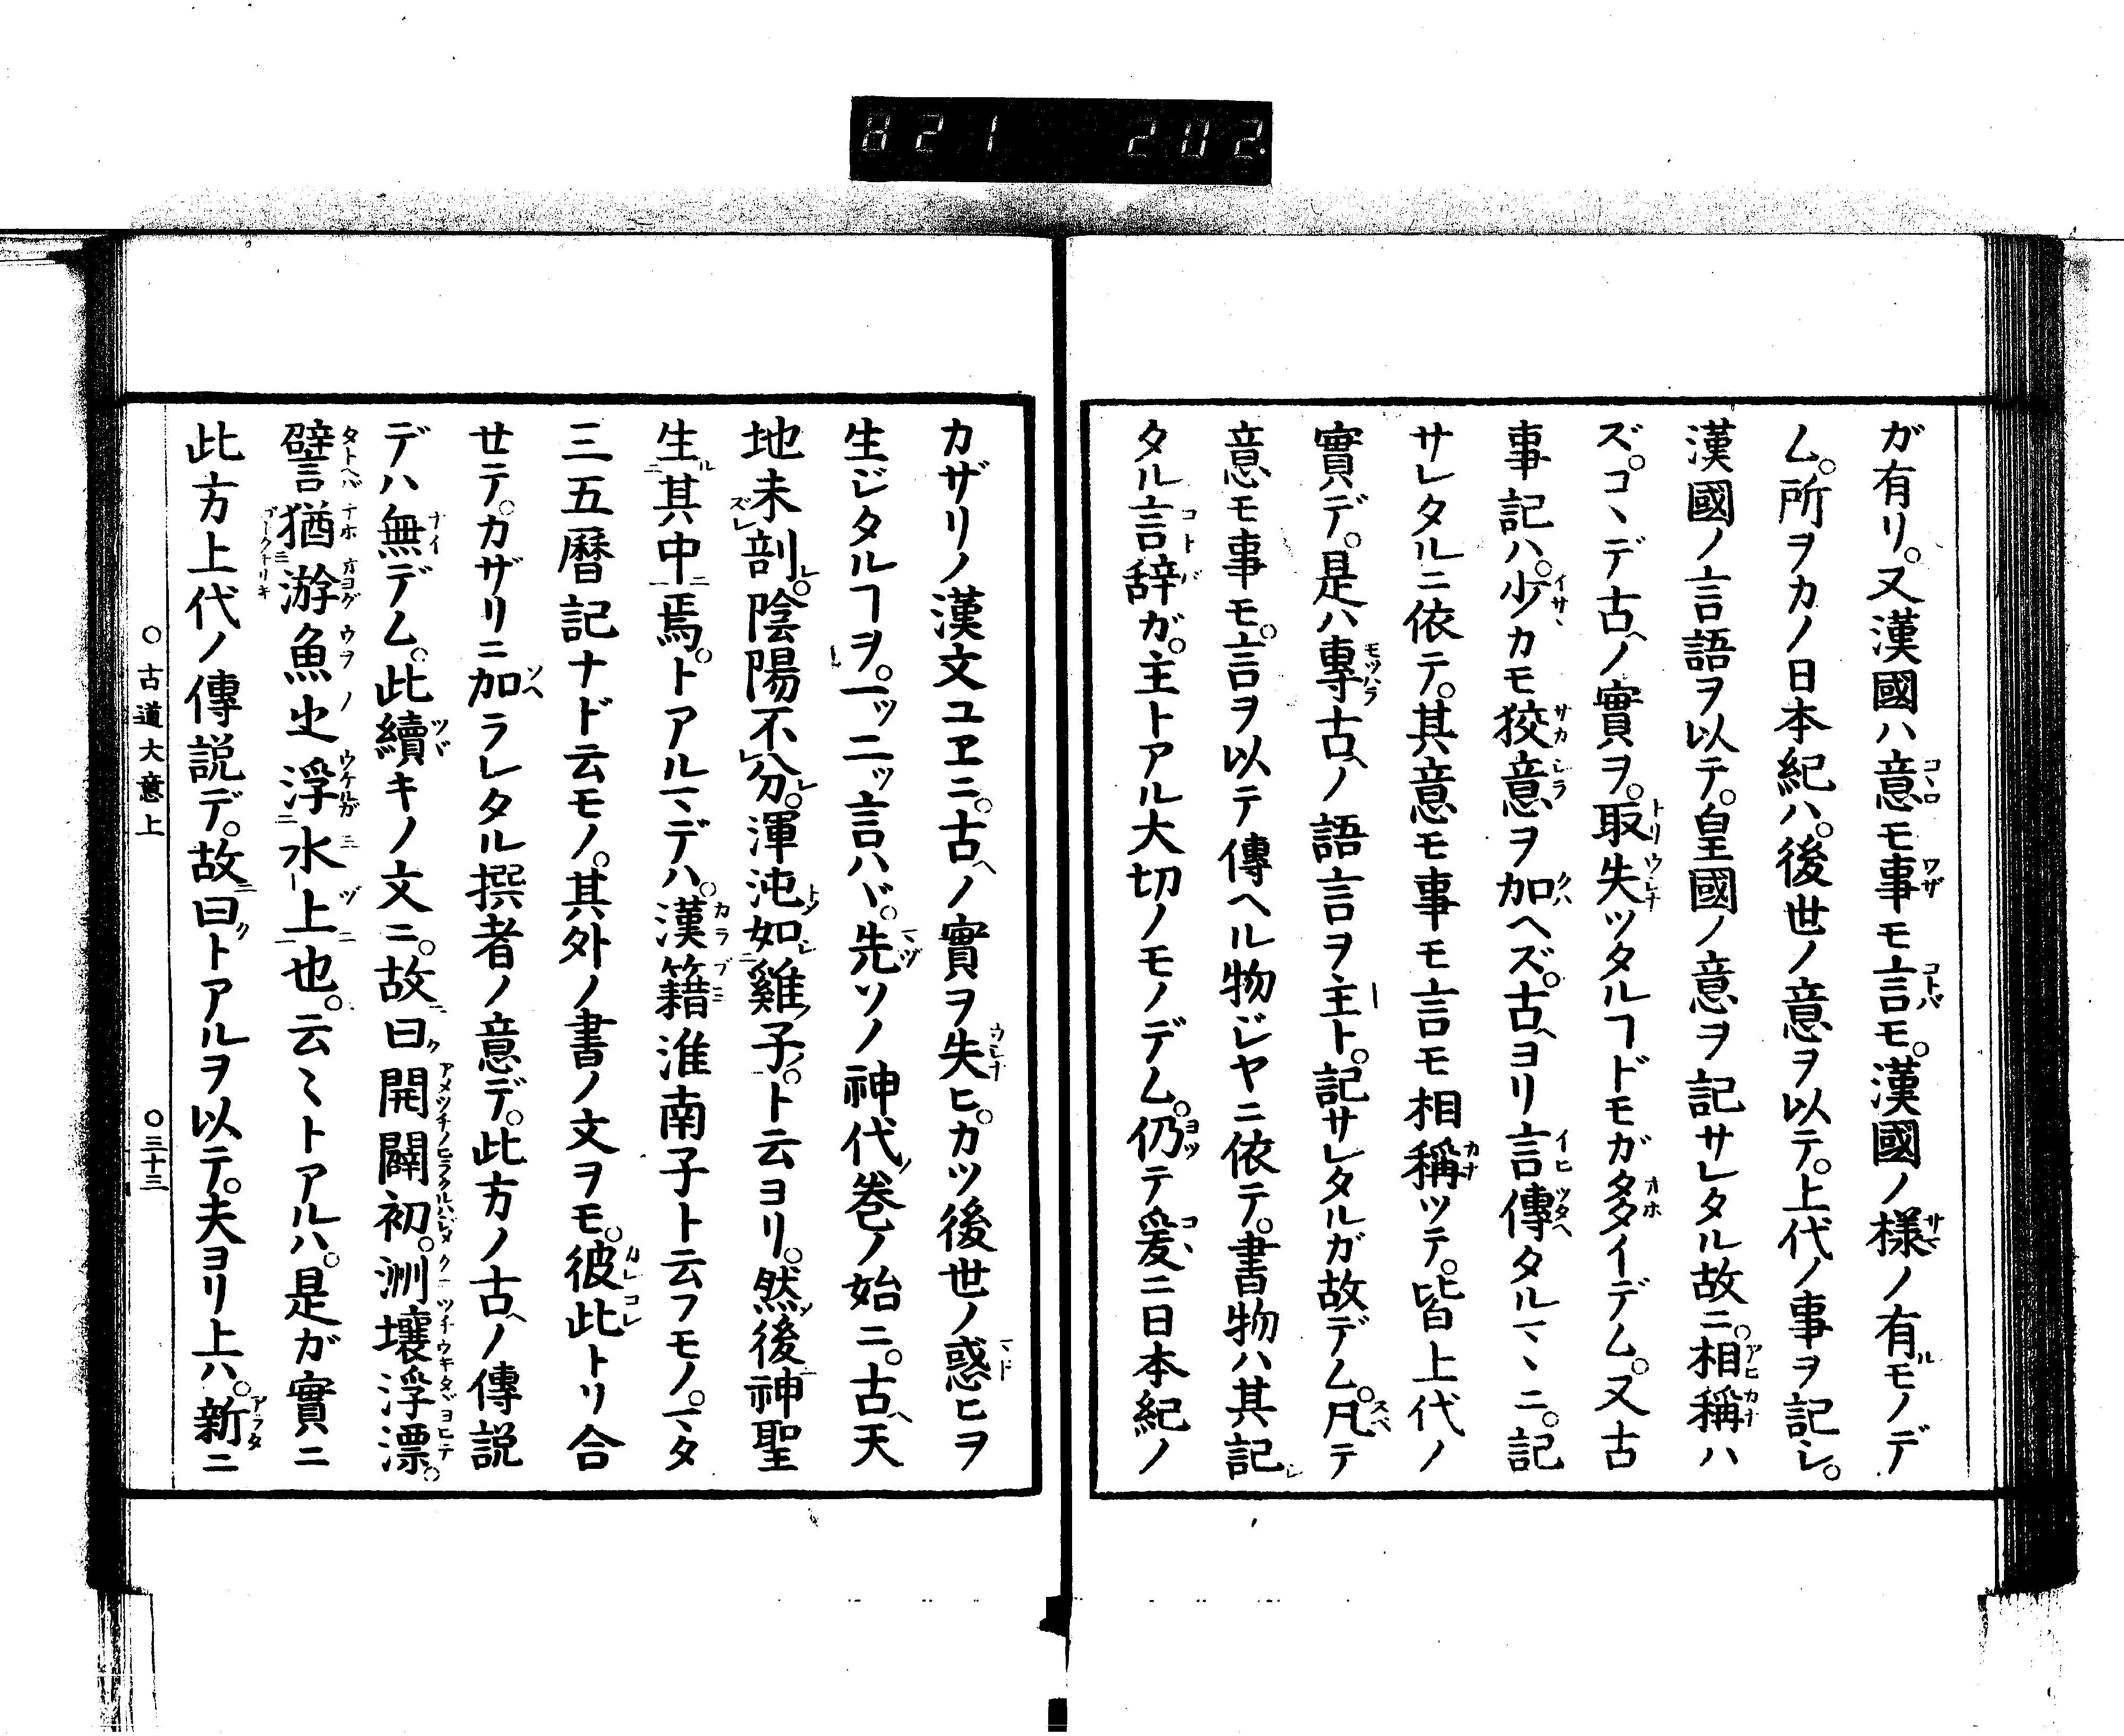 821 202
ガ有リ。又漢國ハ意モ事モ言モ。漢國ノ様ノ有ルモノデ
ム。所ヲカノ日本紀ハ。後世ノ意ヲ以テ。上代ノ事ヲ記シ。
漢國ノ言語ヲ以テ。皇國ノ意ヲ記サレタル故ニ。相稱ハ
ズ。コヽデ古ヘノ實ヲ。取失ツタルヿドモガ多イデム。又古
事記ハ。少カモ狡意ヲ加ヘズ。古ヘヨリ言傳タルマヽニ。記
サレタルニ依テ。其意モ事モ言モ相稱ツテ。皆上代ノ
實デ。是ハ專古ヘノ語言ヲ主ト。記サレタルガ故デム。凡テ
意モ事モ。言ヲ以テ傳ヘル物ジヤニ依テ。書物ハ其記シ
タル言辞ガ。主トアル大切ノモノデム。仍テ爰ニ日本紀ノ
カザリノ漢文ユヱニ。古ヘノ實ヲ失ヒ。カツ後世ノ惑ヒヲ
生ジタルヿヲ。一ッ二ッ言ハヾ。先ソノ神代ノ巻ノ始ニ。古ヘ天
地未剖。陰陽不分。渾沌如雞子。ト云ヨリ。然後神聖
生其中焉。トアルマデハ。漢籍淮南子ト云フモノ。マタ
三五暦記ナド云モノ。其外ノ書ノ文ヲモ。彼此トリ合
セテ。カザリニ加ラレタル撰者ノ意デ。此方ノ古ヘノ傳説
デハ無デム。此續キノ文ニ。故曰開闢初。洲壤浮漂。
譬猶游魚之浮水上也。云々トアルハ。是ガ實ニ
此方上代ノ傳説デ。故曰トアルヲ以テ。夫ヨリ上ハ。新ニ
○古道大意上 ○三十三